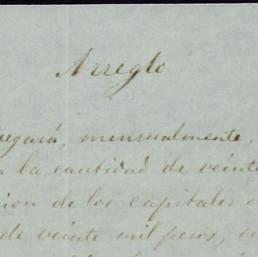 Arreglo
egará, mensualmente,
la cantidad de veinte
cion de los capitales
de veinte mil pesos,